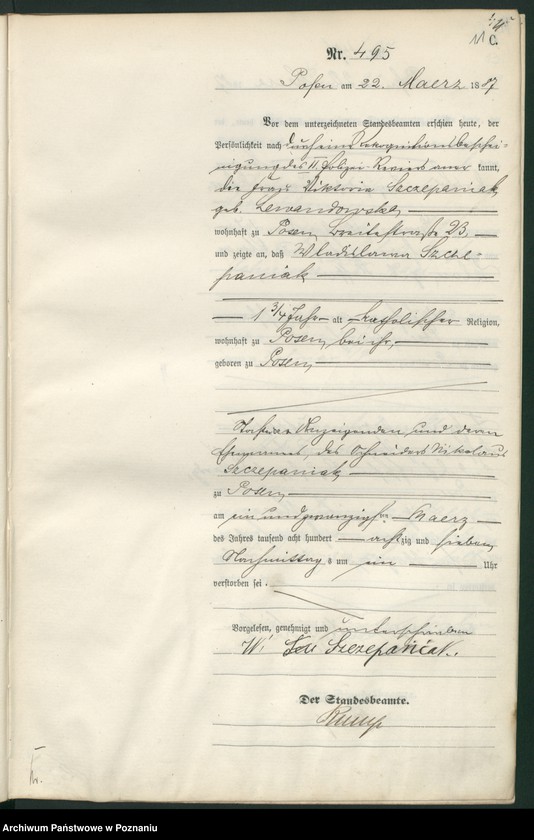 11 C.
Nr. 495
Posen am 22. Maerz 1887
Vor dem unterzeichneten Standesbeamten erschien heute, der
Persönlichkeit nach durch eine Rekognitionsbeschei-
nigung des II Polizei-Reviers anerkannt,
die Frau Viktoria Szczepaniak,
geb. Lewandowska,
wohnhaft zu Posen, Breitestraße 23,
und zeigte an, daß Wladislawa Szcze-
paniak
1 3/4 Jahr alt, katholischer Religion,
wohnhaft zu Posen, bei ihr,
geboren zu Posen,
Tochter der Anzeigenden und deren
Ehemannes, des Schneiders Nikolaus
Szczepaniak,
zu Posen,
am einundzwanzigsten Maerz
des Jahres tausend acht hundert achtzig und sieben,
Nachmittags um ein Uhr
verstorben sei.
Vorgelesen, genehmigt und unterschrieben
Szczepaniak.
Der Standesbeamte.
Archiwum Państwowe w Poznaniu